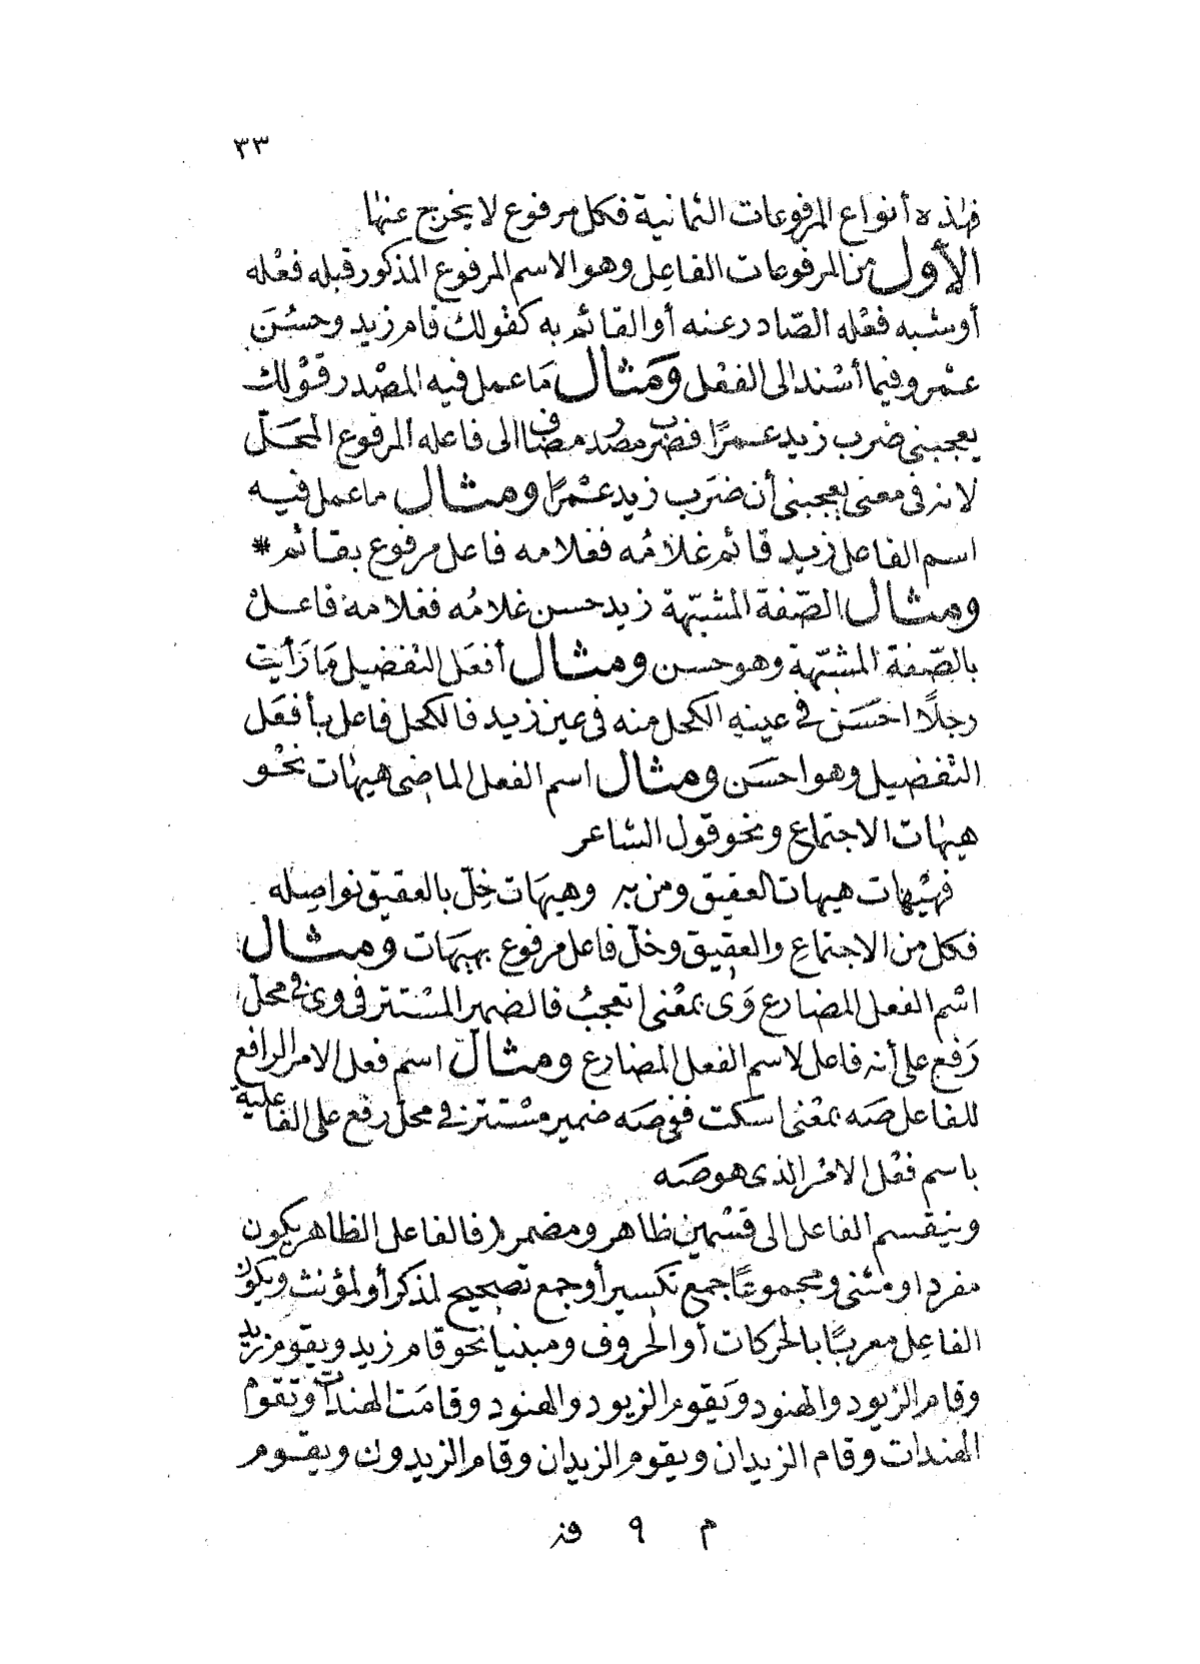 ٣٣
فهذه أنواع المرفوعات الثمانية فكل مرفوع لا يخرج عنها
الأول من المرفوعات الفاعل وهو الاسم المرفوع المذكور قبله فعْله
أو شبه فعْله الصّادر عنه أو القائم به كقولك قام زيد وحسُنَ
عمْرو فيما أسْند الى الفعْل ومثال مَا عمل فيه المصْدر قوْلك
يعجبنى ضرب زيد عمرًا فضرب مصدر مضاف الى فاعله المرفوع المحَلّ
لانه فى معنى يعجبنى أن ضرَب زيد عمْرًا ومثال ما عمل فيه
اسم الفاعل زيد قائم غلامُه فغلامه فاعل مرفوع بقائم *
ومثال الصّفة المشبّهة زيد حسن غلامُه فغلامه فاعل
بالصّفة المشبّهة وهو حسن ومثال أفعَل التفضيل مَا رَأيت
رجلًا احسَن في عينهِ الكحل منه فى عين زيد فالكحل فاعل بأفعَل
التفضيل وهو احسَن ومثال اسم الفعل الماضى هيهات نحْو
هيهات الاجتماع ونحو قول الشاعر
فهيْهات هيهات العقيق ومن به وهيهَات خِلّ بالعقيق نواصِله
فكل من الاجتماع والعقيق وخلّ فاعل مرفوع بهيهَات ومثال
اسْم الفعل المضارع وَىْ بمعْنى اتعجبُ فالضمير المسْتتر فى وى في محلّ
رَفع على أنه فاعل لاسم الفعل المضارع ومثال اسم فعل الامر الرافع
للفاعل صَه بمعْنى اسكت ففى صَه ضمير مسْتتر في محلّ رفع على الفاعلية
باسم فعْل الامْر الذى هو صَه
وينقسم الفاعل الى قسْمين ظاهر ومضمر (فالفاعل الظاهر يكون
مفردا ومثنى ومجموعًا جمع تكسير أو جمع تصحيح لمذكر أو لمؤنث ويكون
الفاعِل معربًا بالحركات أو الحروف ومبنيا نحو قام زيد ويقوم زيد
وقام الزيود والهنود وَيقوم الزيود والهنود وقامَت الهندات وتقوم
الهندات وقام الزيدان ويقوم الزيدان وقام الزيدون ويقوم
م ٩ فز